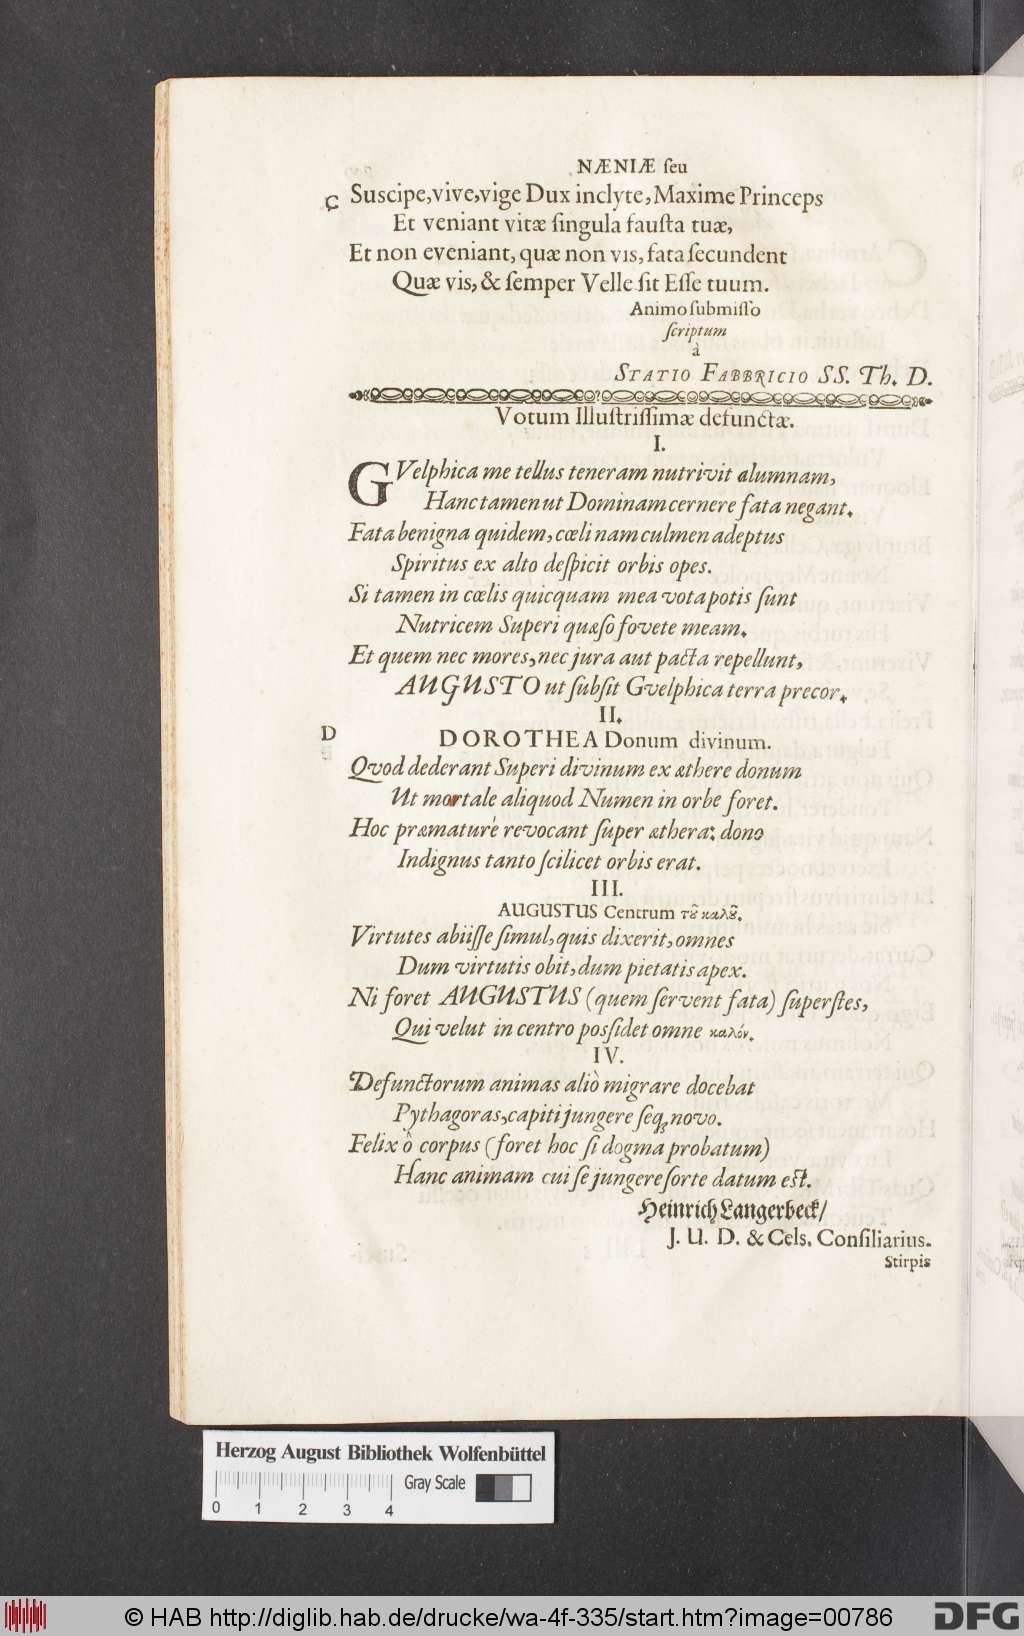 NÆNIÆ ſeu
C Suscipe, vive, vige Dux inclyte, Maxime Princeps
Et veniant vitæ ſingula fauſta tuæ,
Et non eveniant, quæ non vis, fata ſecundent
Quæ vis, & ſemper Velle ſit Eſſe tuum.
Animo ſubmiſſo
ſcriptum
à
STATIO FABBRICIO SS. Th. D.
Votum Illuſtriſſimæ defunctæ.
I.
GVelphica me tellus teneram nutrivit alumnam,
Hanc tamen ut Dominam cernere fata negant.
Fata benigna quidem, cœli nam culmen adeptus
Spiritus ex alto deſpicit orbis opes.
Si tamen in cœlis quicquam mea vota potis ſunt
Nutricem Superi quæſo fovete meam.
Et quem nec mores, nec jura aut pacta repellunt,
AUGUSTO ut ſubſit Gvelphica terra precor.
II.
D DOROTHEA Donum divinum.
Qvod dederant Superi divinum ex æthere donum
Ut mortale aliquod Numen in orbe foret.
Hoc præmaturè revocant ſuper æthera: dono
Indignus tanto ſcilicet orbis erat.
III.
AUGUSTUS Centrum τȣ͂ καλȣ͂.
Virtutes abiiſſe ſimul, quis dixerit, omnes
Dum virtutis obit, dum pietatis apex.
Ni foret AUGUSTUS (quem ſervent fata) ſuperſtes,
Qui velut in centro poſſidet omne καλόν.
IV.
Defunctorum animas aliò migrare docebat
Pythagoras, capiti jungere ſeq; novo.
Felix ô corpus (foret hoc ſi dogma probatum)
Hanc animam cui ſe jungere ſorte datum eſt.
Heinrich Langerbeck/
J. U. D. & Cels. Conſiliarius.
Stirpis
Herzog August Bibliothek Wolfenbüttel
Gray Scale
0 1 2 3 4
© HAB http://diglib.hab.de/drucke/wa-4f-335/start.htm?image=00786
DFG